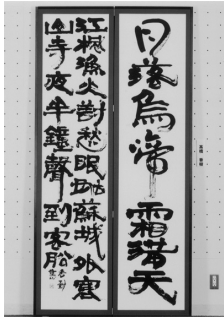 月落烏啼霜満天
江楓漁火對愁眠姑蘇城外寒
山寺夜半鐘聲到客船